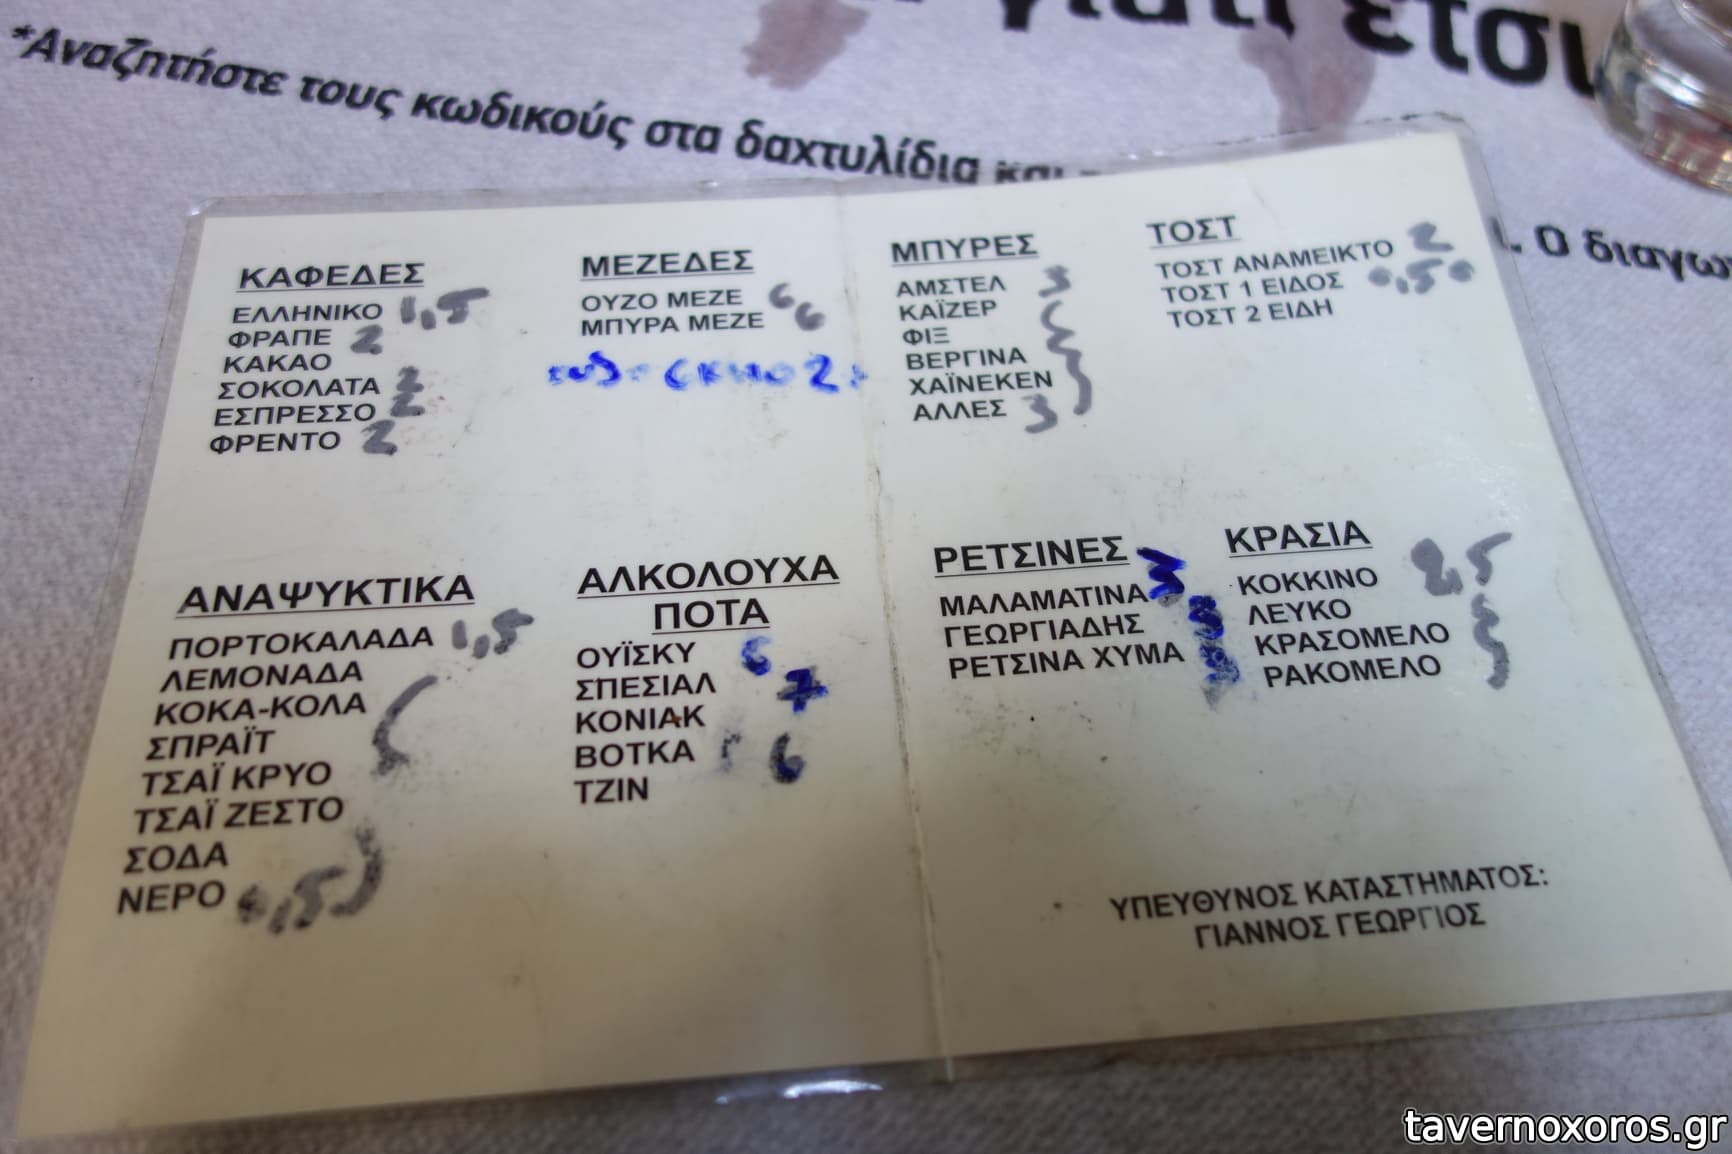 γιατί έτσι
*Αναζητήστε τους κωδικούς στα δαχτυλίδια και
Ο διαγων
ΚΑΦΕΔΕΣ
ΕΛΛΗΝΙΚΟ 1,5
ΦΡΑΠΕ 2
ΚΑΚΑΟ
ΣΟΚΟΛΑΤΑ 2
ΕΣΠΡΕΣΣΟ 2
ΦΡΕΝΤΟ 2
ΜΕΖΕΔΕΣ
ΟΥΖΟ ΜΕΖΕ 6
ΜΠΥΡΑ ΜΕΖΕ 6
ΜΠΥΡΕΣ
ΑΜΣΤΕΛ 3
ΚΑΪΖΕΡ
ΦΙΞ
ΒΕΡΓΙΝΑ
ΧΑΪΝΕΚΕΝ
ΑΛΛΕΣ 3
ΤΟΣΤ
ΤΟΣΤ ΑΝΑΜΕΙΚΤΟ 2
ΤΟΣΤ 1 ΕΙΔΟΣ
ΤΟΣΤ 2 ΕΙΔΗ
ΑΝΑΨΥΚΤΙΚΑ
ΠΟΡΤΟΚΑΛΑΔΑ 1,5
ΛΕΜΟΝΑΔΑ
ΚΟΚΑ-ΚΟΛΑ
ΣΠΡΑΪΤ
ΤΣΑΪ ΚΡΥΟ
ΤΣΑΪ ΖΕΣΤΟ
ΣΟΔΑ
ΝΕΡΟ
ΑΛΚΟΛΟΥΧΑ
ΠΟΤΑ
ΟΥΪΣΚΥ 6
ΣΠΕΣΙΑΛ 7
ΚΟΝΙΑΚ
ΒΟΤΚΑ 6
ΤΖΙΝ
ΡΕΤΣΙΝΕΣ
ΜΑΛΑΜΑΤΙΝΑ 3
ΓΕΩΡΓΙΑΔΗΣ 3
ΡΕΤΣΙΝΑ ΧΥΜΑ
ΚΡΑΣΙΑ
ΚΟΚΚΙΝΟ 2,5
ΛΕΥΚΟ
ΚΡΑΣΟΜΕΛΟ
ΡΑΚΟΜΕΛΟ
ΥΠΕΥΘΥΝΟΣ ΚΑΤΑΣΤΗΜΑΤΟΣ:
ΓΙΑΝΝΟΣ ΓΕΩΡΓΙΟΣ
tavernoxoros.gr